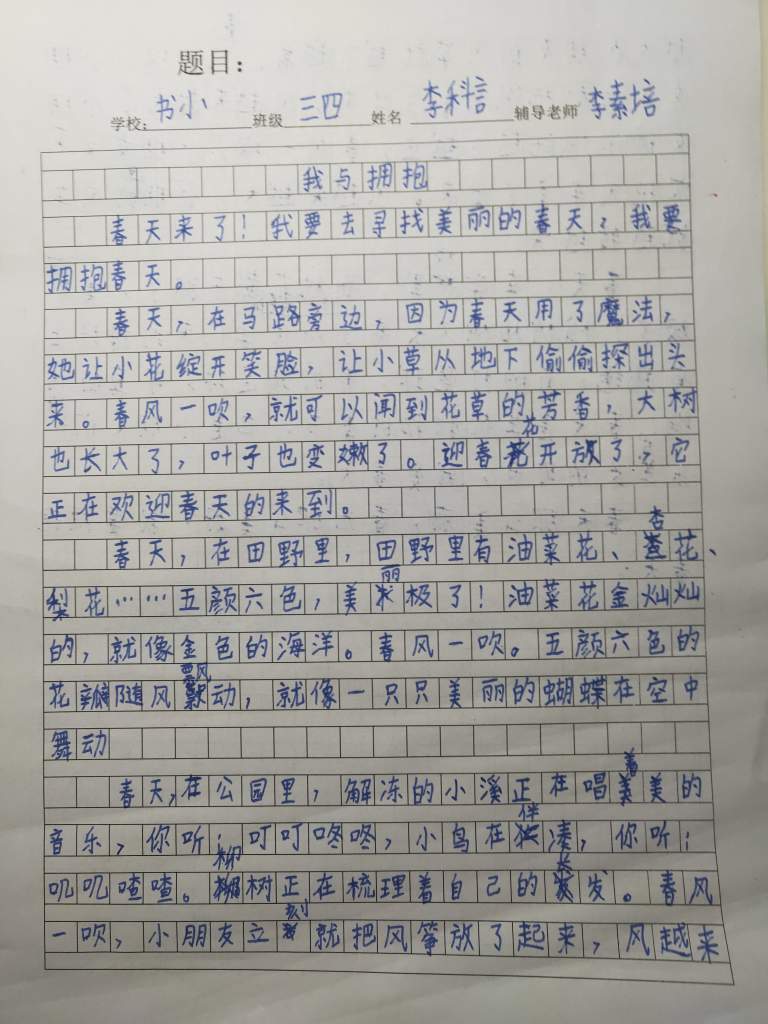 题目：
学校：书小 班级 三四 姓名 李科言 辅导老师 李素培
我与拥抱
春天来了！我要去寻找美丽的春天，我要
拥抱春天。
春天，在马路旁边，因为春天用了魔法，
她让小花绽开笑脸，让小草从地下偷偷探出头
来。春风一吹，就可以闻到花草的芳香，大树
也长大了，叶子也变嫩了。迎春花开放了，它
正在欢迎春天的来到。
春天，在田野里，田野里有油菜花、杏花、
梨花……五颜六色，美丽极了！油菜花金灿灿
的，就像金色的海洋。春风一吹。五颜六色的
花瓣随风飘动，就像一只只美丽的蝴蝶在空中
舞动
春天，在公园里，解冻的小溪正在唱着美美的
音乐，你听：叮叮咚咚，小鸟在伴凑，你听：
叽叽喳喳。柳树正在梳理着自己的长发。春风
一吹，小朋友立刻就把风筝放了起来，风越来